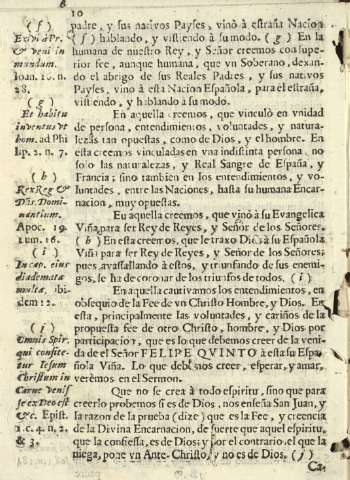 10
padre, y sus nativos Payses, vinò à estraña Nacion
( f ) hablando, y vistiendo à su modo. ( g ) En la
humana de nuestro Rey, y Señor creemos con supe-
rior fee, aunque humana, que vn Soberano, dexan-
do el abrigo de sus Reales Padres, y sus nativos
Payses, vino à esta Nacion Española, para el estraña,
vistiendo, y hablando à su modo.
En aquella creemos, que vinculò en vnidad
de persona, entendimientos, voluntades, y natura-
lezas tan opuestas, como de Dios, y el hombre. En
esta creemos vinculadas en vna indistinta persona, no
solo las naturalezas, y Real Sangre de España, y
Francia; sino tambien en los entendimientos, y vo-
luntades, entre las Naciones, hasta su humana Encar-
nacion, muy opuestas.
En aquella creemos, que vinò à su Evangelica
Viña, para ser Rey de Reyes, y Señor de los Señores.
( h ) En esta creemos, que le traxo Dios à su Española
Viña para ser Rey de Reyes, y Señor de los Señores;
pues avassallando à estos, y triunfando de sus enemi-
gos, se ha de coronar de los triunfos de todos. ( i )
En aquella cautivamos los entendimientos, en
obsequio de la Fee de vn Christo Hombre, y Dios. En
esta, principalmente las voluntades, y cariños de la
propuesta fee de otro Christo, hombre, y Dios por
participacion, que es lo que debemos creer de la veni-
da de el Señor FELIPE QVINTO à esta su Espa-
ñola Viña. Lo que debemos creer, esperar, y amar,
verèmos en el Sermon.
Que no se crea à todo espiritu, sino que para
creerlo probemos si es de Dios, nos enseña San Juan, y
la razon de la prueba (dize) que es la Fee, y creencia
de la Divina Encarnacion, de suerte que aquel espiritu,
que la confiessa, es de Dios; y por el contrario, el que la
niega, pone vn Ante-Christo, y no es de Dios. ( j )
Ca-
( f )
Exivi à Pa-
& veni in
mundum.
Ioan. 16. n.
28.
( g )
Et habitu
inventus vt
hom. ad Phi
lip. 2. n. 7.
( h )
Rex Reg &
Dñs. Domi-
nantium.
Apoc. 19.
num. 16.
( i )
In cap. eius
diademata
multa, ibi-
dem 12.
( j )
Omnis Spir.
qui confite-
tur Iesum
Christum in
Carne venis-
se ex Deo est
&c. Epist.
1. c. 4. n. 2.
& 3.